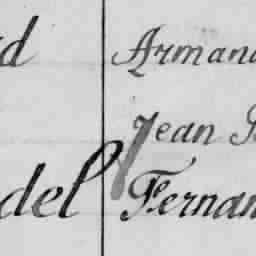 d Armand
Jean
del Fernan